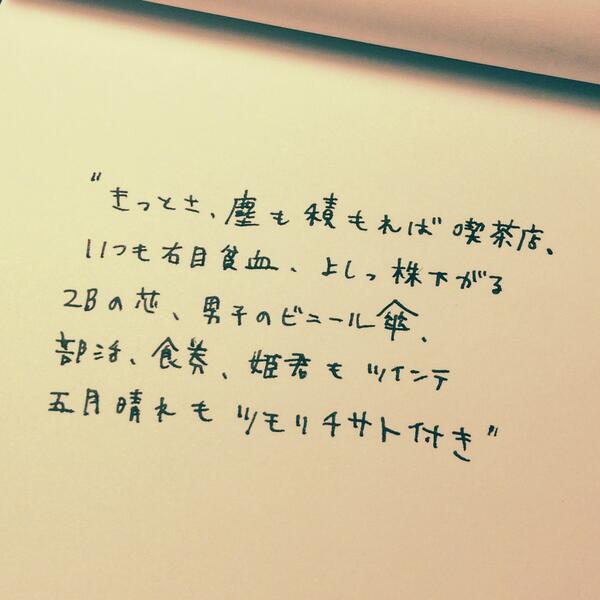 "きっとさ、塵も積もれば喫茶店、
いつも右目貧血、よしっ株下がる
2Bの芯、男子のビニール傘、
部活、食券、姫君もツインテ
五月晴れもツモリチサト付き"